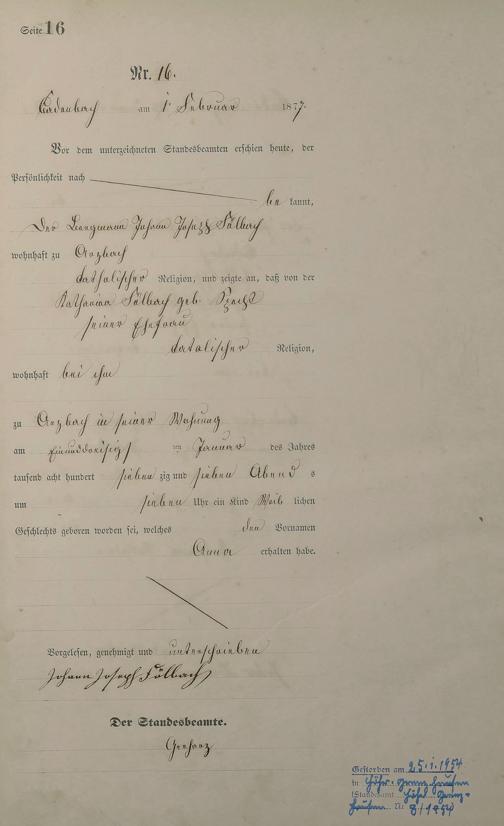 Seite 16
Nr. 16.
Cadenbach am 1 Februar 1877.
Vor dem unterzeichneten Standesbeamten erschien heute, der
Persönlichkeit nach
be kannt,
Der Bergmann Johann Joseph Fölbach
wohnhaft zu Arzbach
katholischer Religion, und zeigte an, daß von der
Katharina Fölbach geb. Specht
seiner Ehefrau
katolischer Religion,
wohnhaft bei ihm
zu Arzbach in seiner Wohnung
am Einunddreisigs ten Januar des Jahres
tausend acht hundert sieben zig und sieben Abend s
um sieben Uhr ein Kind Weib lichen
Geschlechts geboren worden sei, welches den Vornamen
Anna erhalten habe.
Vorgelesen, genehmigt und unterschrieben
Johann Joseph Fölbach
Der Standesbeamte.
Gestorben am 25.1.1954
in Höhr-Grenzhausen
(Standesamt Höhr-Grenz-
hausen Nr 8/1954